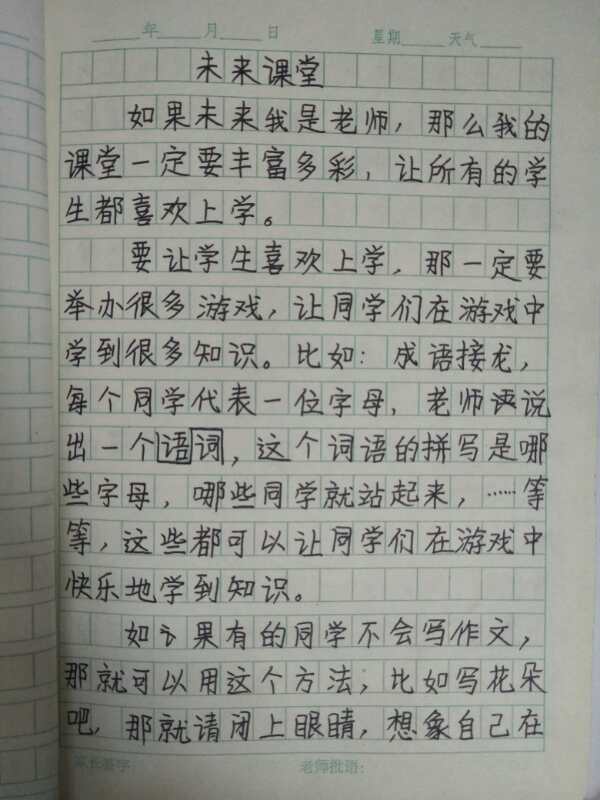 年 月 日 星期 天气
未来课堂
如果未来我是老师，那么我的
课堂一定要丰富多彩，让所有的学
生都喜欢上学。
要让学生喜欢上学，那一定要
举办很多游戏，让同学们在游戏中
学到很多知识。比如：成语接龙，
每个同学代表一位字母，老师说
出一个语词，这个词语的拼写是哪
些字母，哪些同学就站起来，……等
等，这些都可以让同学们在游戏中
快乐地学到知识。
如果有的同学不会写作文，
那就可以用这个方法；比如写花朵
吧，那就请闭上眼睛，想象自己在
家长签字： 老师批语：